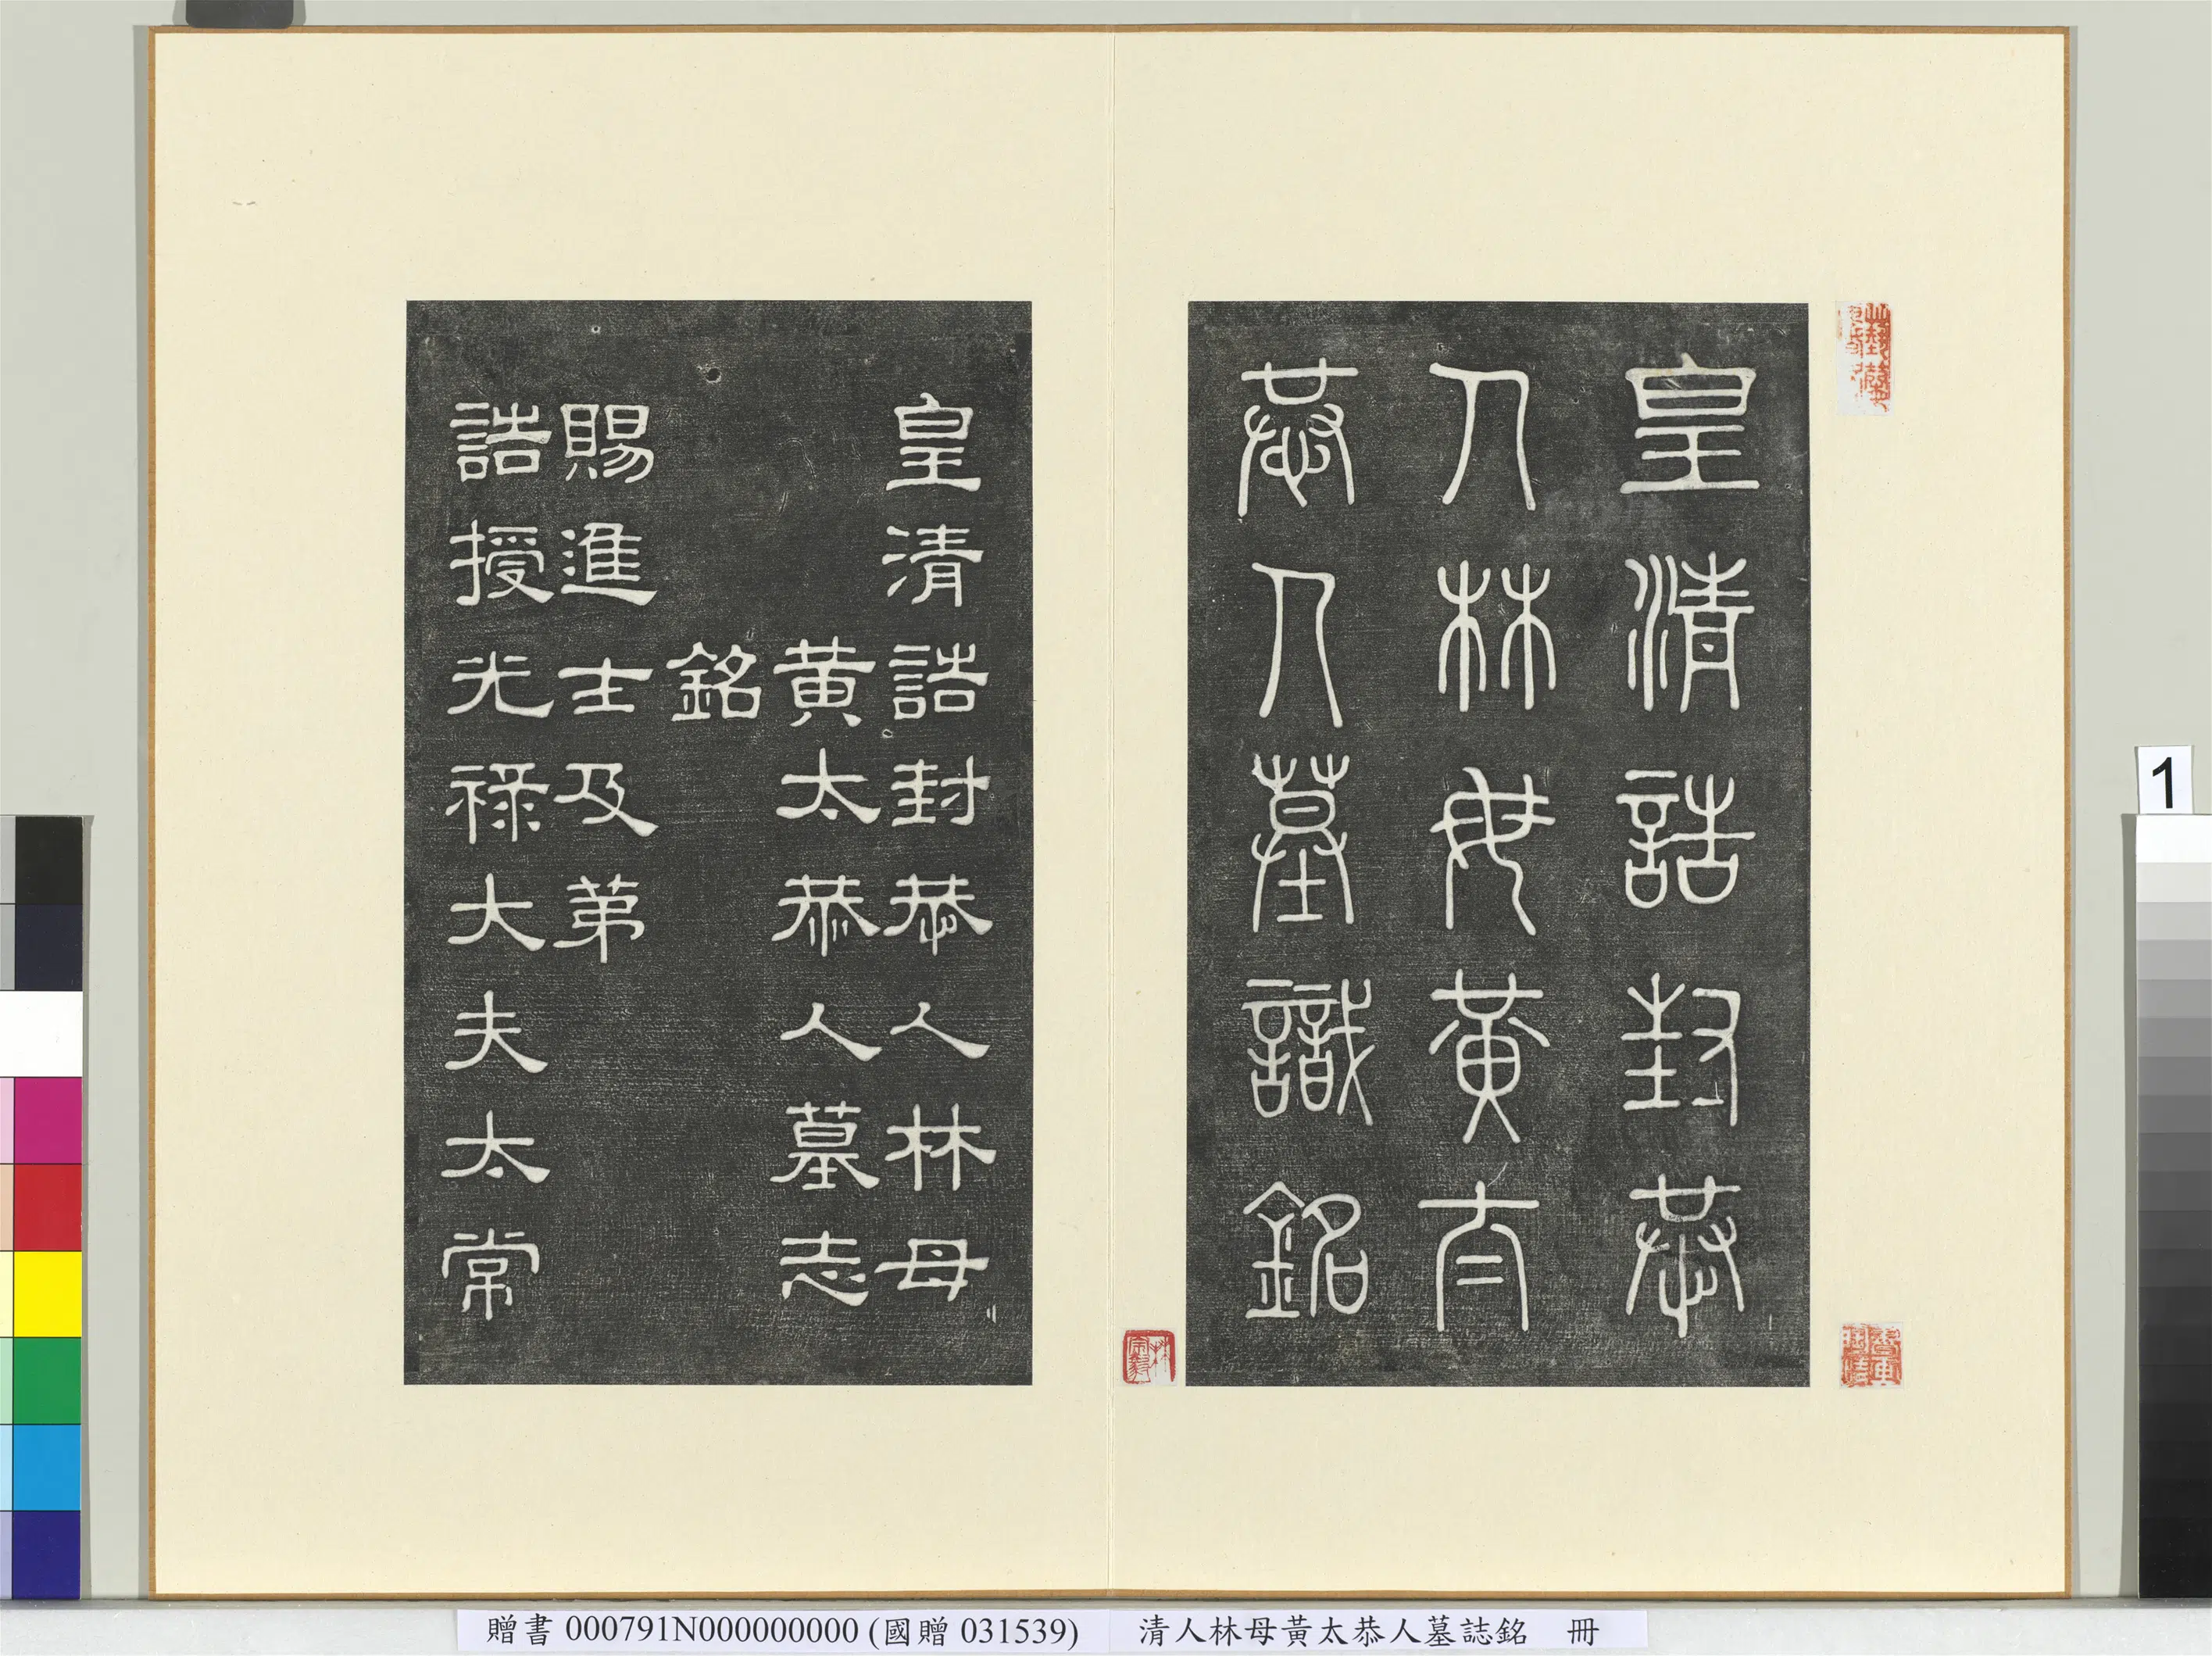 皇清誥封恭
人林母黃太
恭人墓識銘
皇清誥封恭人林母
黃太恭人墓志
銘
賜進士及弟
誥授光祿大夫太常
林宗毅
1
贈書 000791N000000000 (國贈 031539)
清人林母黃太恭人墓誌銘 冊